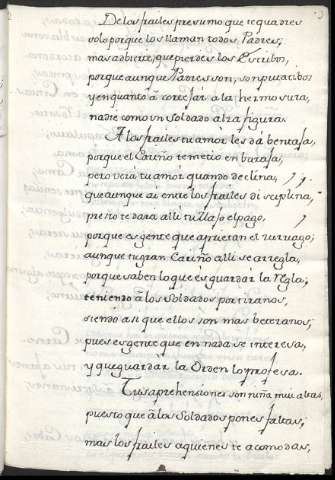 De los frailes presumo que te quadres
solo porque los llaman todos, Padres;
mas adbierte, que pierdes los Estribos,
porque aunque Padres son, son putatibos
y en quanto â corejar a la hermosura,
nadie como un Soldado alza figura.
A los frailes tu amor les dá bentaja,
porque el Cariño te metio en baraja;
pero vera tu amor quando declina,
que aunque ai entre los frailes disciplina,
presto te dara alli tullajo el pago,
porque es gente que aprietan el
aunque tu gran Cariño alli se arregla,
porque saben lo que es guardar la regla;
teniendo â los Soldados por tiranos,
siendo asi que ellos son mas beceranos;
pues es gente que en nada se interesa,
y que guardar la Orden lo profesa.
Tus aprehensiones son niña mui altas,
puesto que â los Soldados pones faltas;
mas los frailes a quienes te acomodas,